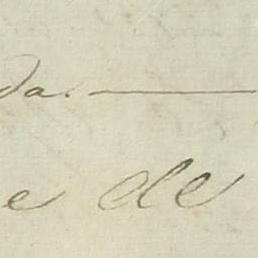 da. —
e de